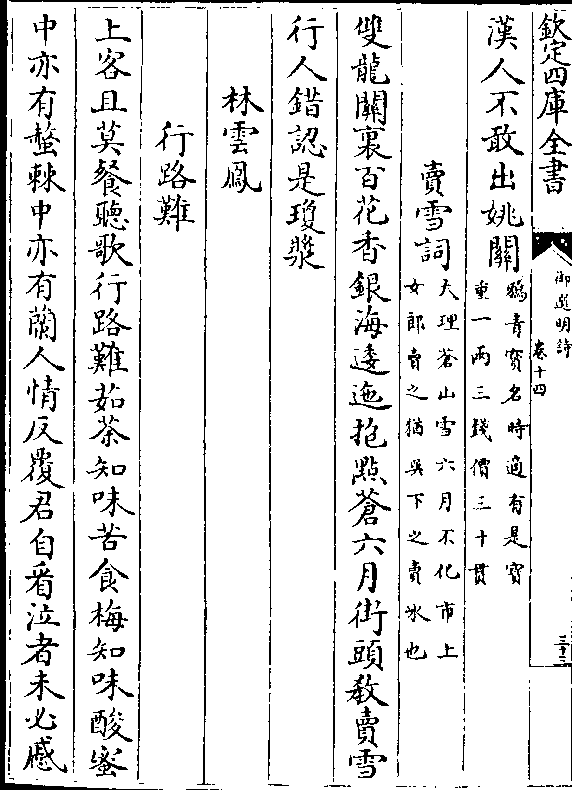 欽定四庫全書
御選明詩
卷十四
三十三
漢人不敢出姚關
鴉青寳名時適有是寳
重一兩三錢價三十貫
賣雪詞
大理蒼山雪六月不化市上
女郎賣之猶吳下之賣冰也
雙龍關裏百花香銀海逶迤抱點蒼六月街頭敎賣雪
行人錯認是瓊漿
林雲鳳
行路難
上客且莫餐聽歌行路難茹荼知味苦食梅知味酸蜜
中亦有螫棘中亦有蘭人情反覆君自看泣者未必慼